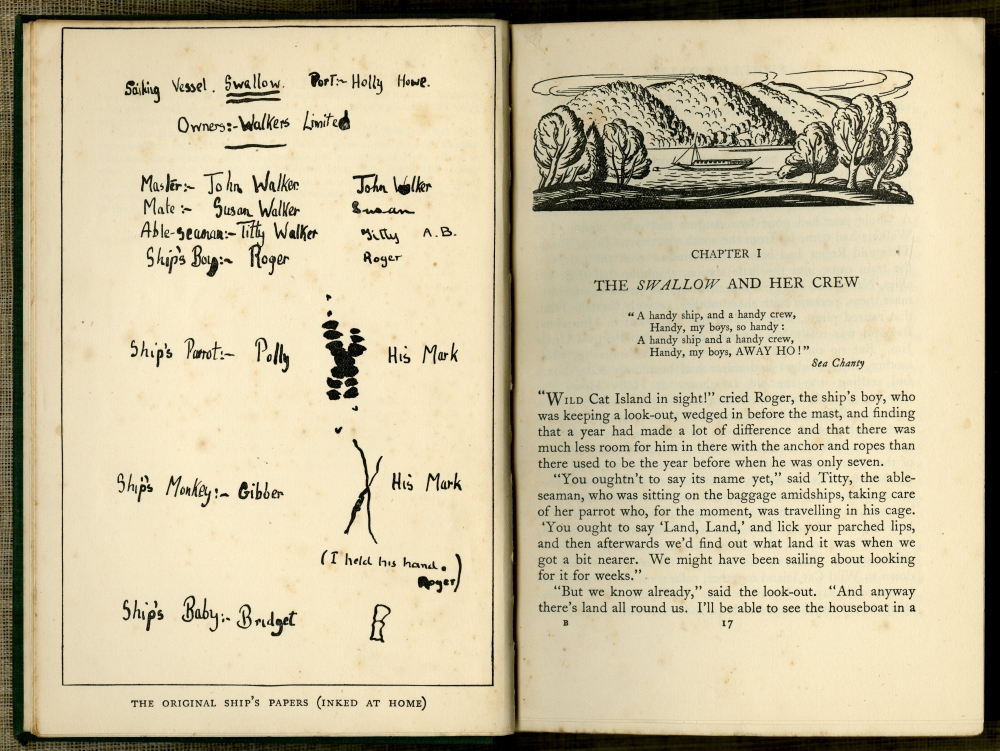 Sailing Vessel. Swallow. Port:- Holly Howe.
Owners:- Walkers Limited
Master:- John Walker John Walker
Mate:- Susan Walker Susan
Able-seaman:- Titty Walker Titty A.B.
Ship's Boy:- Roger Roger
Ship's Parrot:- Polly His Mark
Ship's Monkey:- Gibber His Mark
(I held his hand.
Roger)
Ship's Baby:- Bridget B
THE ORIGINAL SHIP'S PAPERS (INKED AT HOME)
CHAPTER I
THE SWALLOW AND HER CREW
“ A handy ship, and a handy crew,
Handy, my boys, so handy :
A handy ship and a handy crew,
Handy, my boys, AWAY HO ! ”
Sea Chanty
“WILD Cat Island in sight!” cried Roger, the ship's boy, who
was keeping a look-out, wedged in before the mast, and finding
that a year had made a lot of difference and that there was
much less room for him in there with the anchor and ropes than
there used to be the year before when he was only seven.
“You oughtn't to say its name yet,” said Titty, the able-
seaman, who was sitting on the baggage amidships, taking care
of her parrot who, for the moment, was travelling in his cage.
‘You ought to say ‘Land, Land,’ and lick your parched lips,
and then afterwards we'd find out what land it was when we
got a bit nearer. We might have been sailing about looking
for it for weeks.”
“But we know already,” said the look-out. “And anyway
there's land all round us. I'll be able to see the houseboat in a
B 17